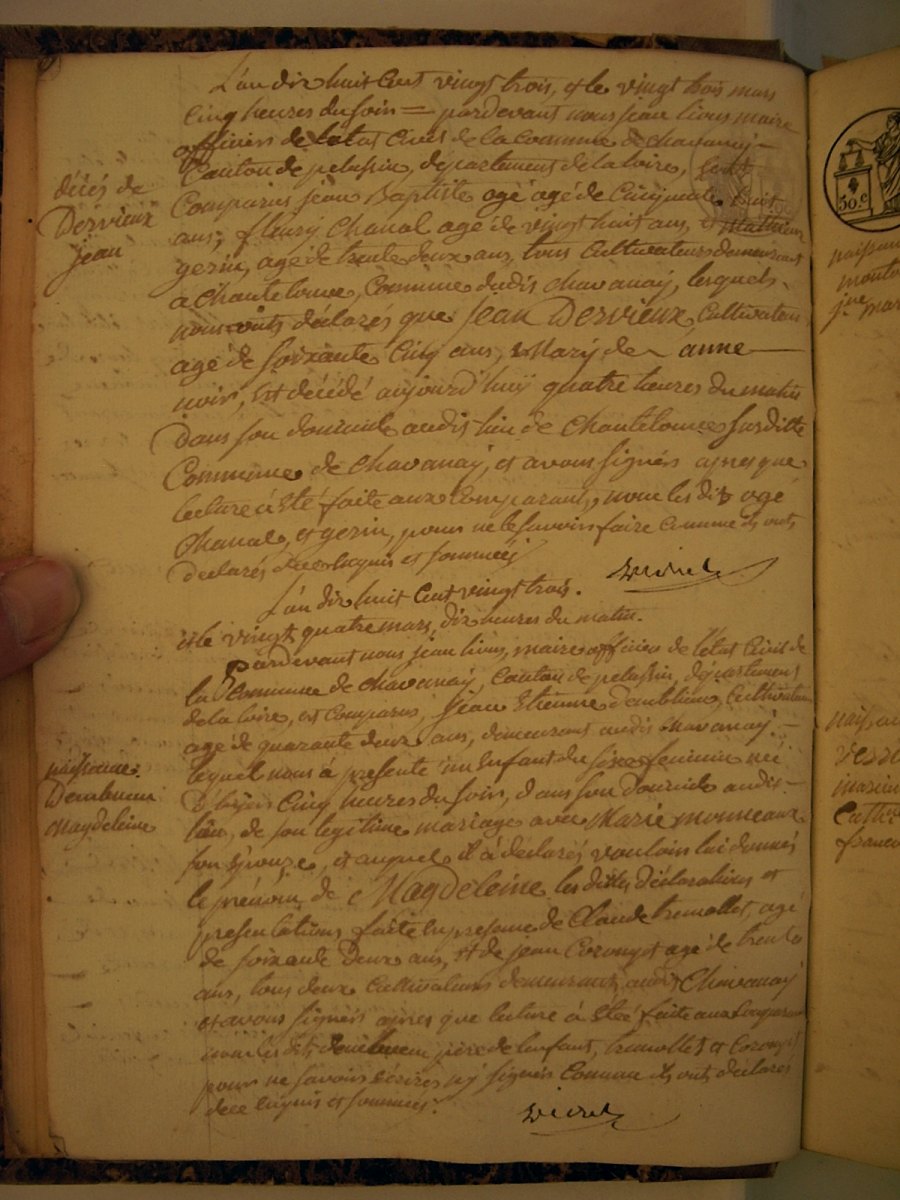 L'an dix huit Cent vingt trois, et le vingt trois mars
Cinq heures du soir = pardevant nous jean lions maire
officier de letat Civil de la Commune de chavanay -
Canton de pelussin, département de la loire, sont
Comparus jean Baptiste ogé agé de Cinquante huit
ans, fleury Chanal agé de vingt huit ans, et Mathieu
gerin, agé de trente deux ans, tous Cultivateurs demeurant
a chantelouve, Commune dudit chavanay, lesquels
nous onts déclarés que jean Dervieux, Cultivateur
agé de soixante Cinq ans, Mary de anne
noir, est décédé aujourd'huy quatre heures du matin
Dans son domicile audit lieu de Chantelouve susditte
Commune de chavanay, et avons signés apres que
lecture à été faite aux Comparants, nom les dits ogé
Chanal, et gerin, pour ne le savoir faire Comme ils onts
declarés de ce enquis et sommés
décés de
Dervieux
jean
L'an dix huit Cent vingt trois.
et le vingt quatre mars, dix heures du matin.
Pardevant nous jean lions, maire officier de l'état Civil de
la Commune de chavanay, Canton de pelussin, département
de la loire, est Comparus, jean Etienne Cultivateur
agé de quarante deux ans, demeurant audit chavanay. -
lequel nous à presenté un Enfant du sexe feminin né
D'hyer Cinq heures du soir, dans son domicile audit -
lieu, de son legitime mariage avec Marie monneaux
son Epouze, et auquel il à déclarés vouloir lui donnés
le prénom de Magdeleine les dittes déclarations et
presentations faite en presence de Claude tremollet, agé
de soixante deux ans, et de jean Coronpt agé de trente
ans, tous deux Cultivateurs demeurants audit Chavanay
et avons signés apres que lecture à été faite aux Comparants
nom les dits père de lenfant, tremollet et Coronpt
pour ne savoir écrires ny signés Comme ils onts déclarés
de ce enquis et sommés.
naissance
Magdeleine
50 c